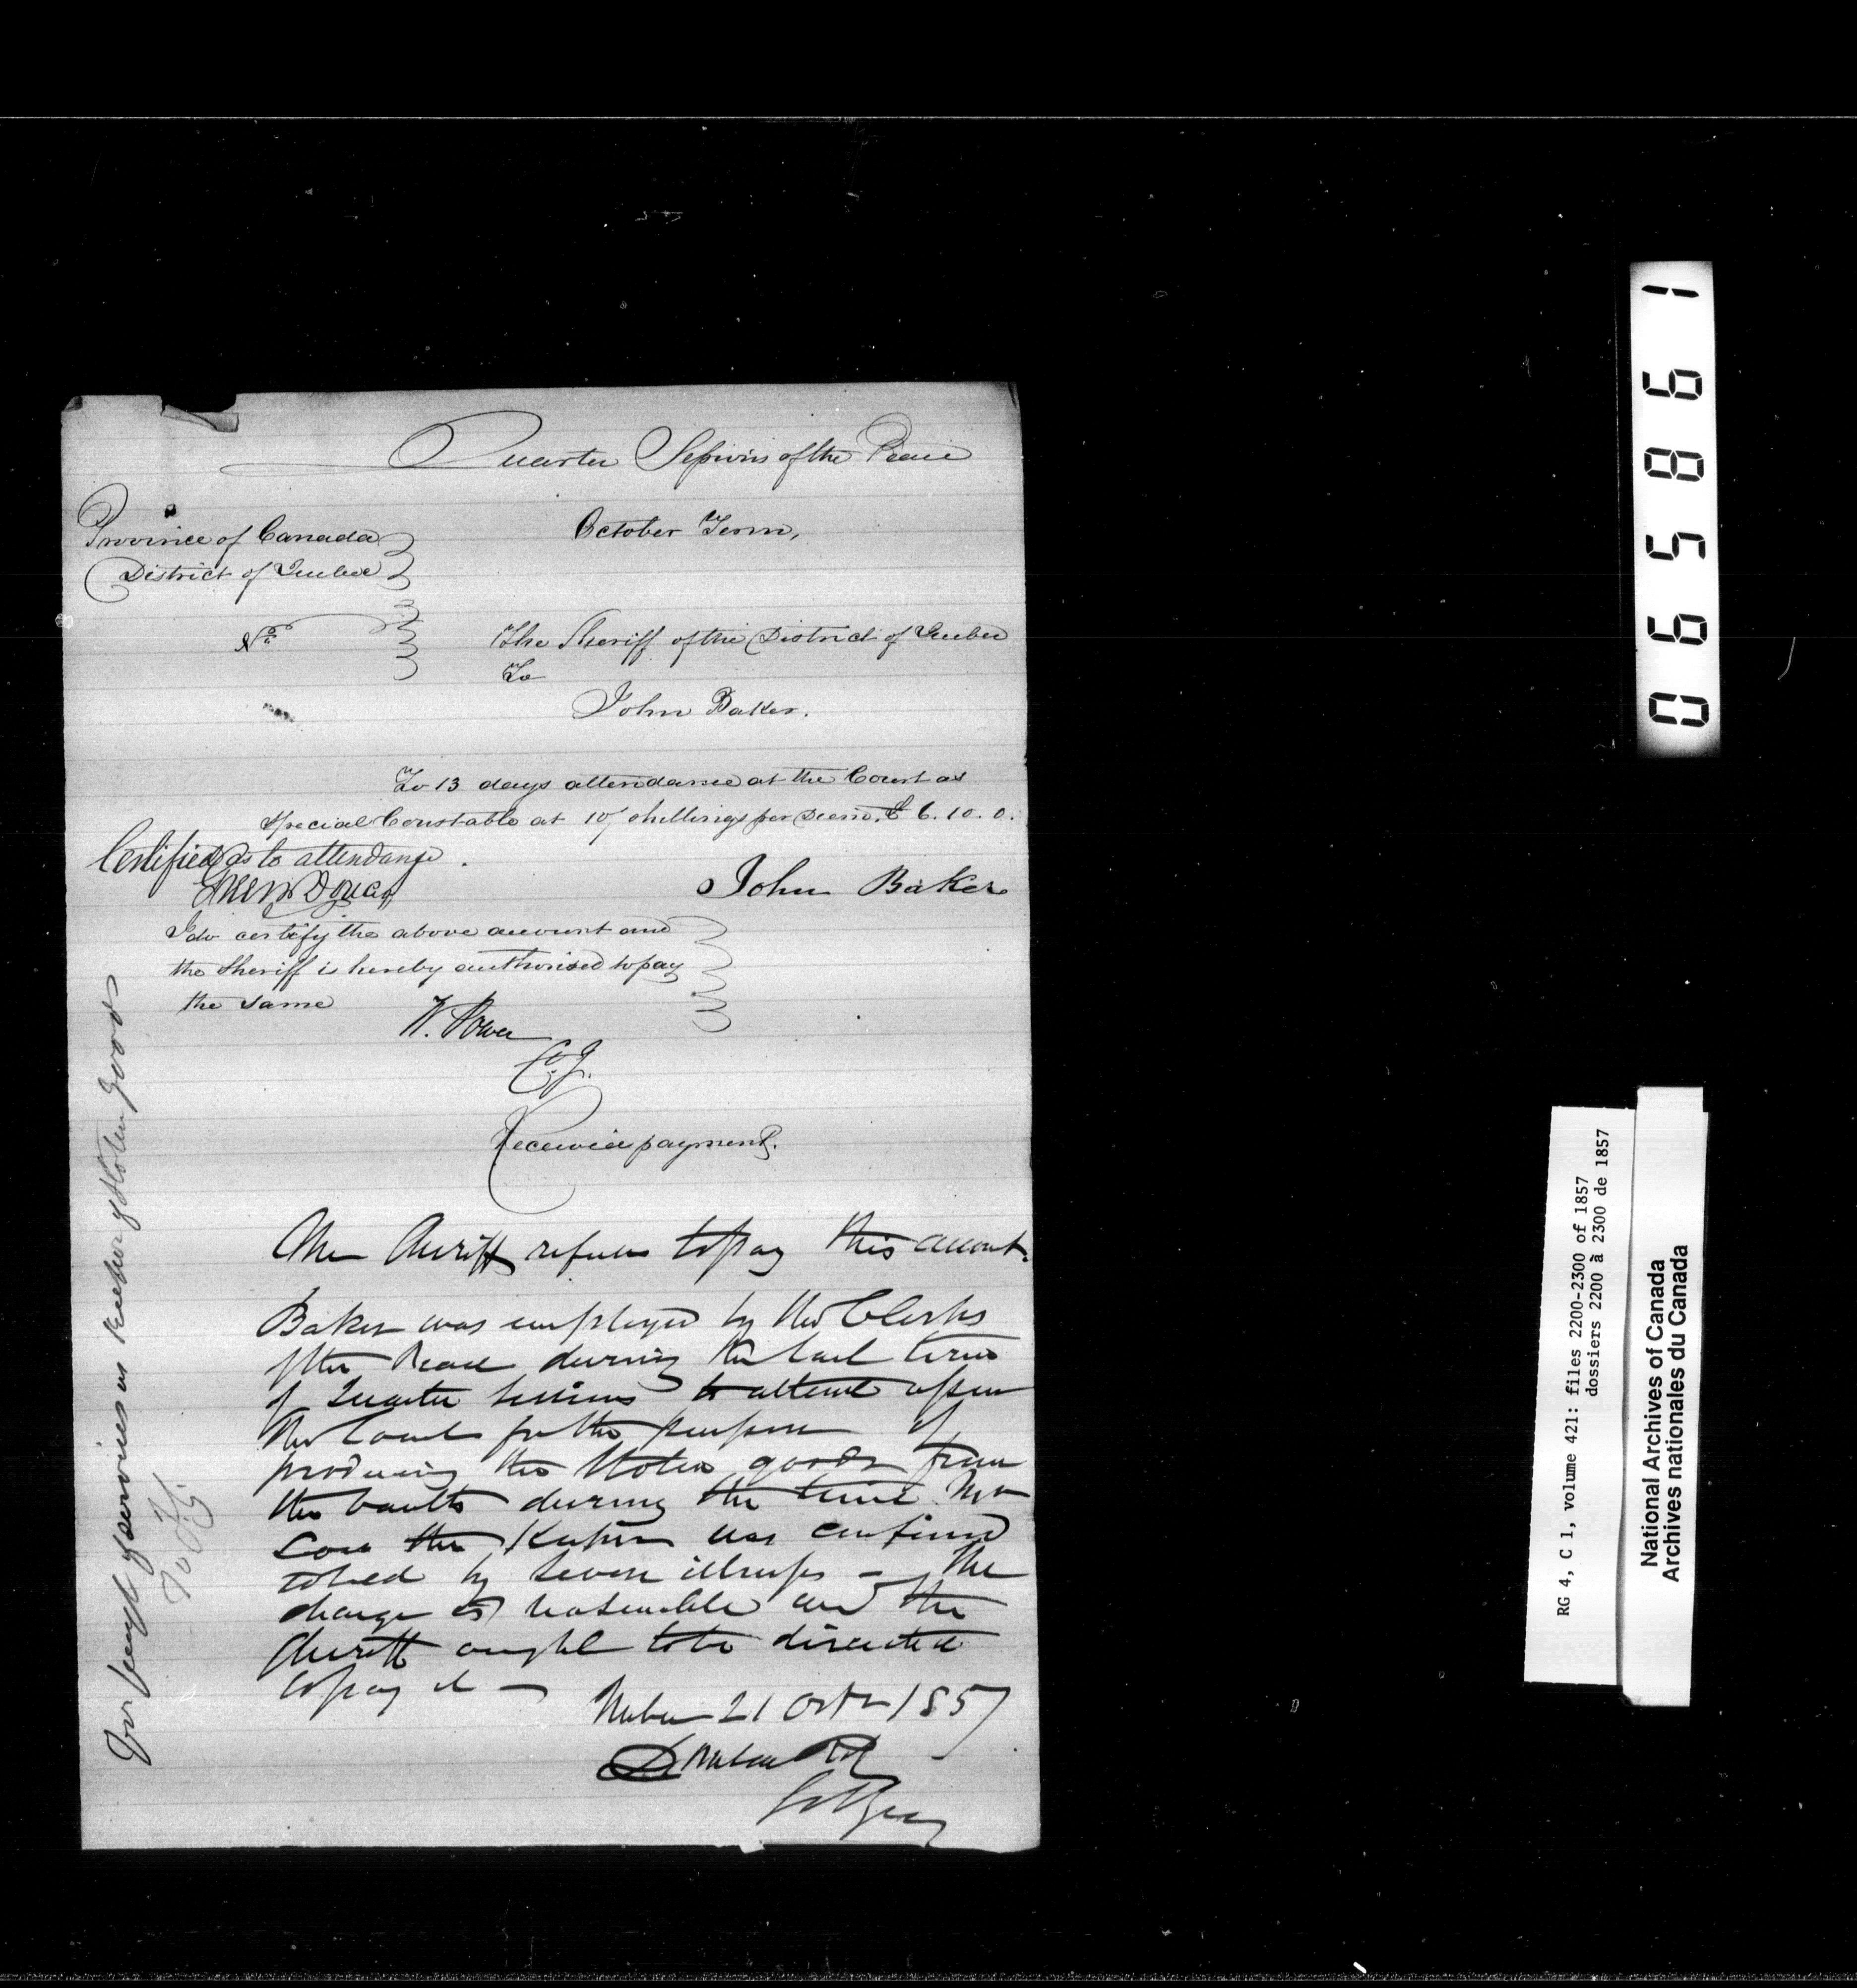 Quarter Sessions of the Peace
Province of Canada
District of Quebec
October Term,
No
The Sheriff of the District of Quebec
To
John Baker.
To 13 days attendance at the Court as
Special Constable at 10/ shillings per Diem. £ 6. 10. 0.
Certified as to attendance.
John Baker
I do certify the above account and
the Sheriff is hereby authorised to pay
the same
W. Power
C. J.
Received payment.
The Sheriff refuses to pay this account.
Baker was employed by the Clerks
of the Peace during the last term
of Quarter Sessions to attend upon
the Court for the purpose of
producing the Stolen goods from
the vaults during the time Mr
the Keeper was confined
to bed by severe illness - The
charge is reasonable and the
Sheriff ought to be directed
to pay it -
Quebec 21 Octr 1857
For paymt of services as of Stolen Goods
065861
RG 4, C 1, volume 421: files 2200-2300 of 1857
dossiers 2200 à 2300 de 1857
National Archives of Canada
Archives nationales du Canada